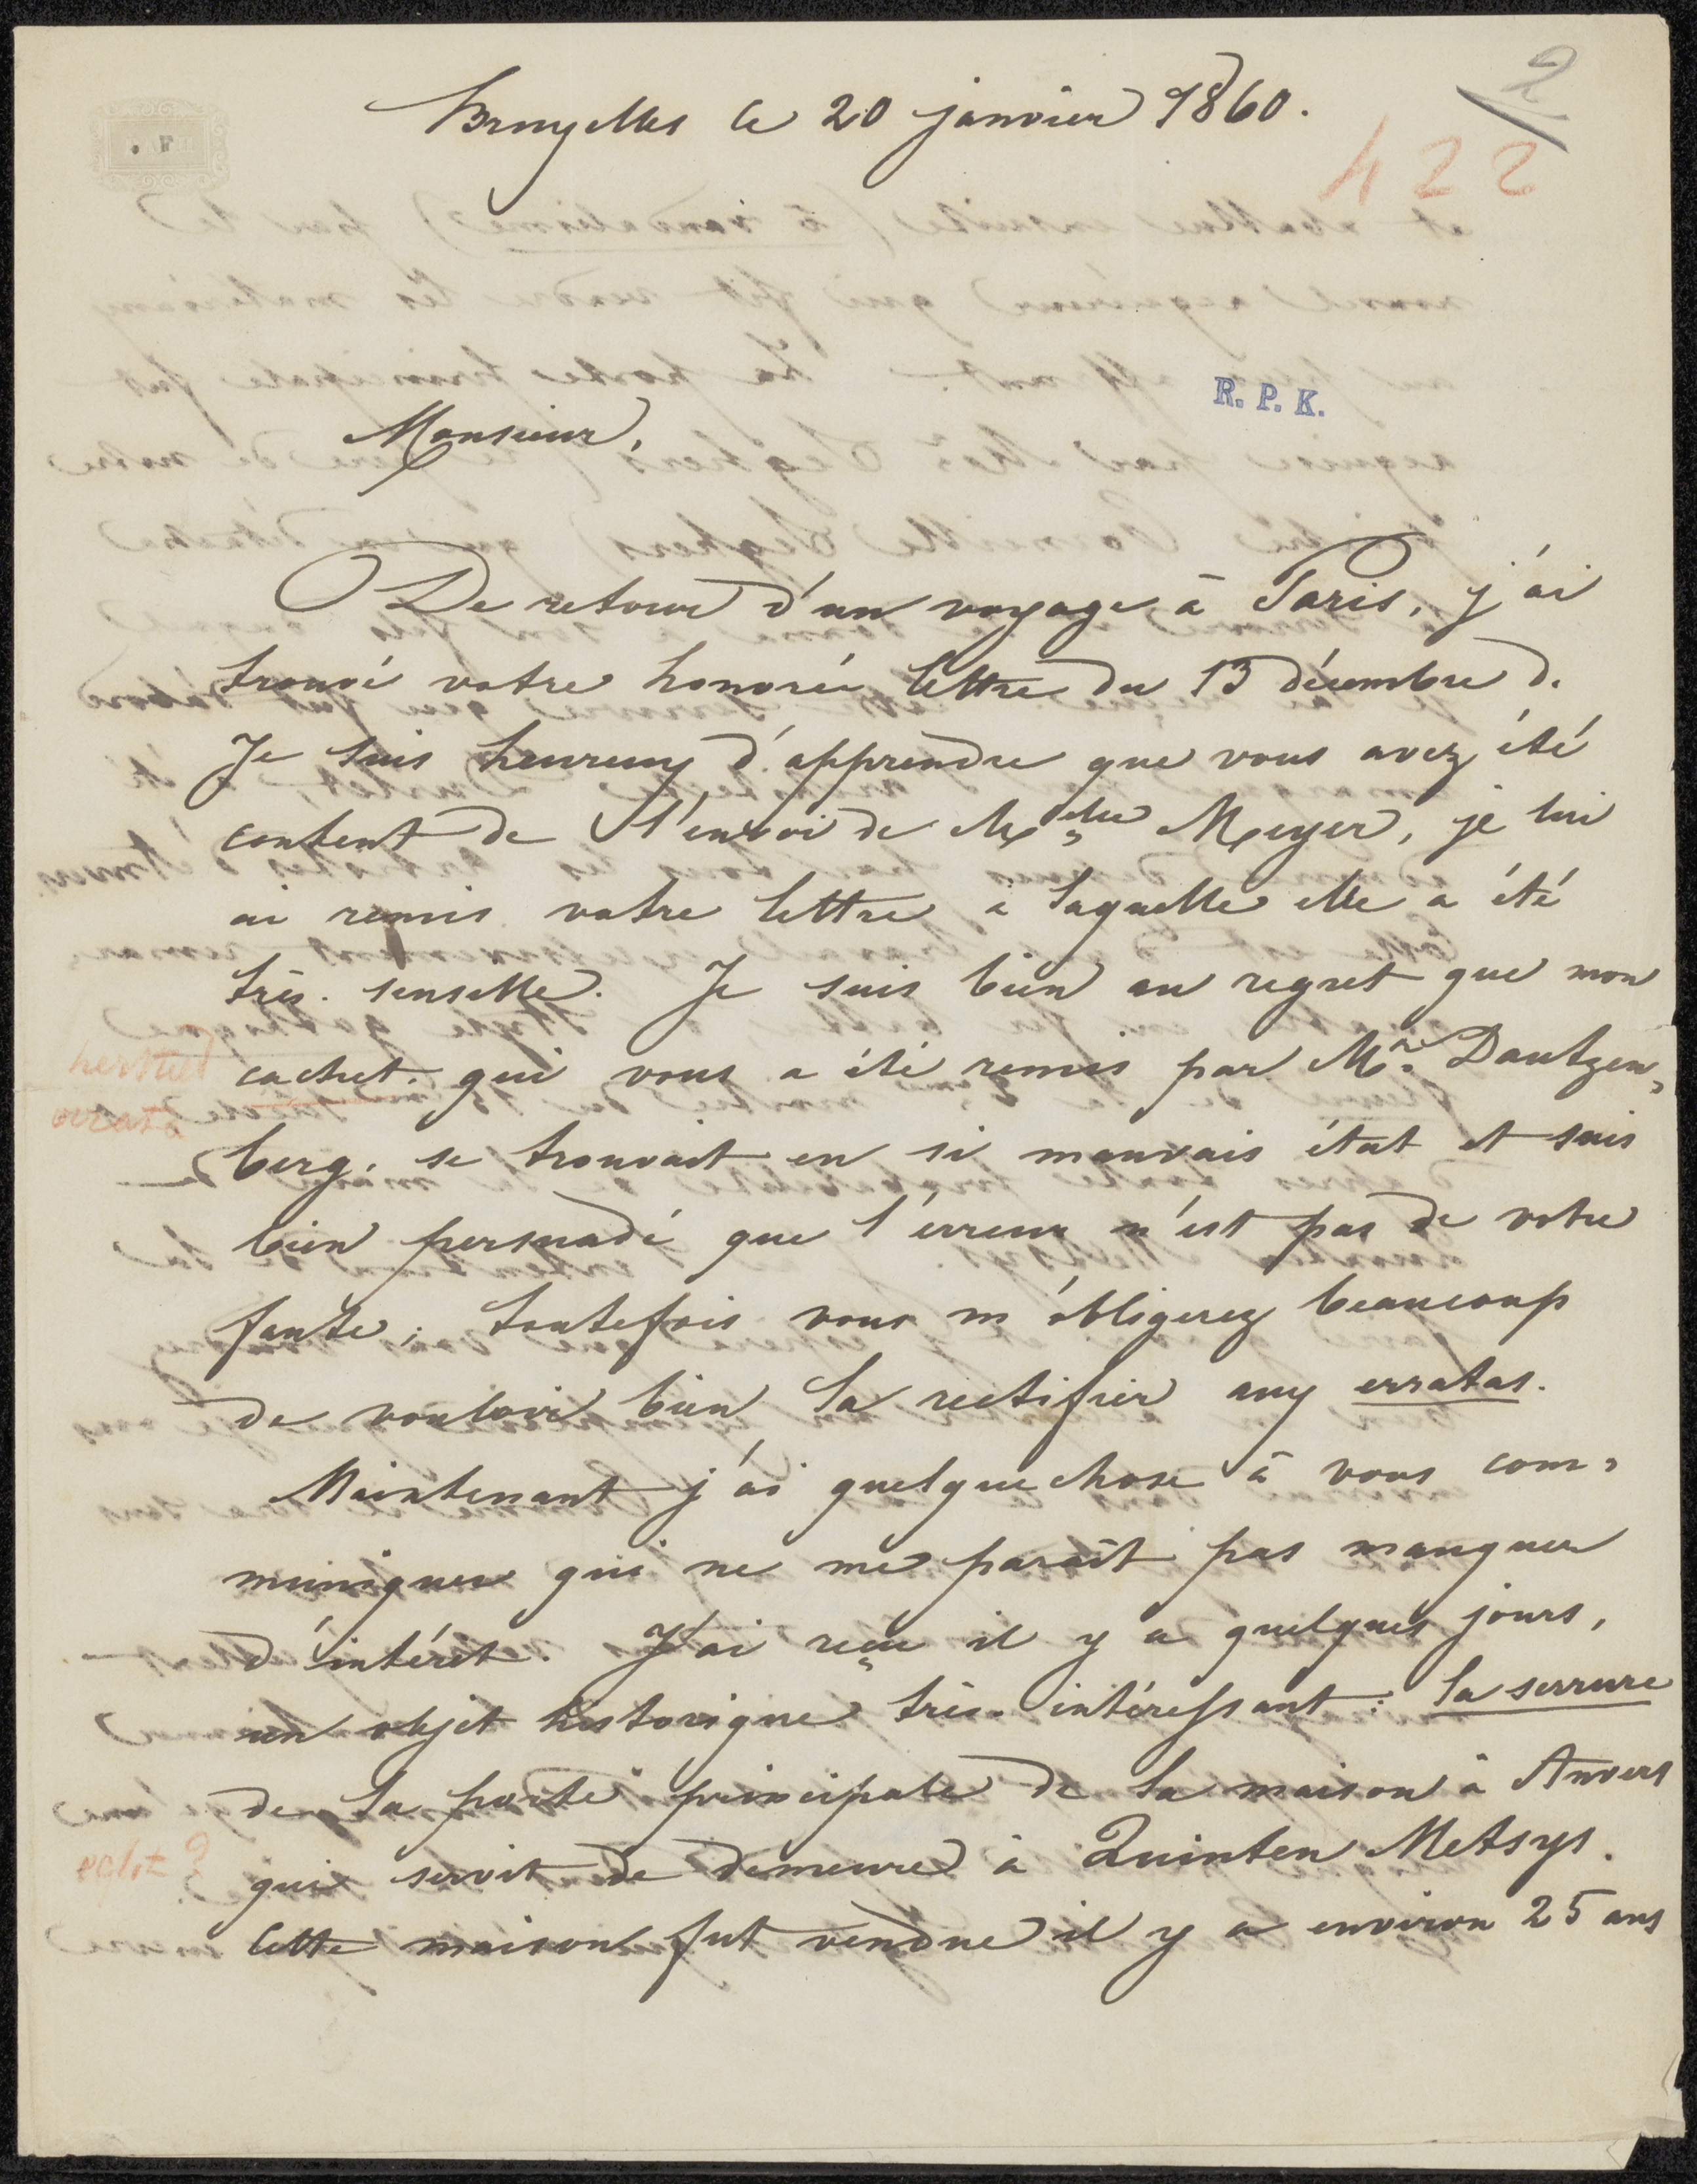 Bruxelles le 20 janvier 1860.
2
422
R. P. K.
Monsieur,
De retour d'un voyage à Paris, j'ai
trouvé votre honorée lettre du 13 décembre d.
Je suis heureux d'apprendre que vous avez été
content de l'envoi de Melle Meyer, je lui
ai remis votre lettre à laquelle elle a été
très-sensible. Je suis bien au regret que mon
cachet qui vous a été remis par Mr. Dautzen-
berg, se trouvait en si mauvais état et suis
bien persuadé que l'erreur n'est pas de votre
faute; toutefois vous m'obligerez beaucoup
de vouloir bien la rectifier aux erratas.
Maintenant j'ai quelque chose à vous com-
muniquer qui ne me paraît pas manquer
d'intérêt. J'ai reçu il y a quelques jours,
un objet historique très-intéressant: la serrure
de la porte principale de la maison à Anvers
qui servit de demeure à Quinten Metsys.
Cette maison fut vendue il y a environ 25 ans
errata